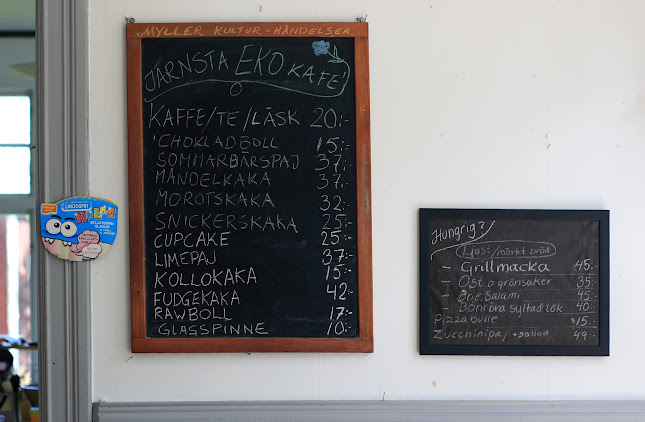 MYLLER KULTUR-HÄNDELSER
JÄRNSTA EKO KAFE'
KAFFE/TE/LÄSK 20:-
CHOKLADBOLL 15:-
SOMMARBÄRSPAJ 37:-
MANDELKAKA 37:-
MOROTSKAKA 32:-
SNICKERSKAKA 25:-
CUPCAKE 25:-
LIMEPAJ 37:-
KOLLOKAKA 15:-
FUDGEKAKA 42:-
RAWBOLL 17:-
GLASSPINNE 10:-
LAKTOSFRI
Hungrig?
Ljust/mörkt bröd
- Grillmacka 45:-
- Ost o grönsaker 35:-
- Brie, Salami 45:-
- Bönröra syltad lök 40:-
Pizzabulle 15:-
Zucchinipaj +sallad 49:-